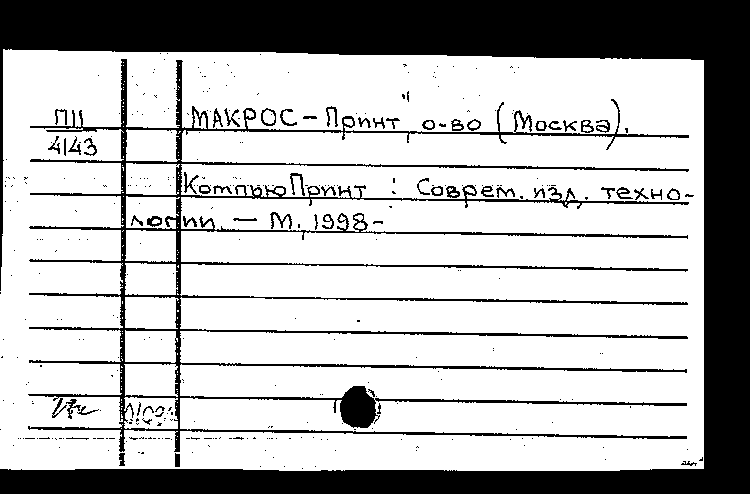 П11 МАКРОС-Принт" о-во (Москва).
4143
КомпьюПринт : Соврем. изд. техно-
логии. — М., 1998-